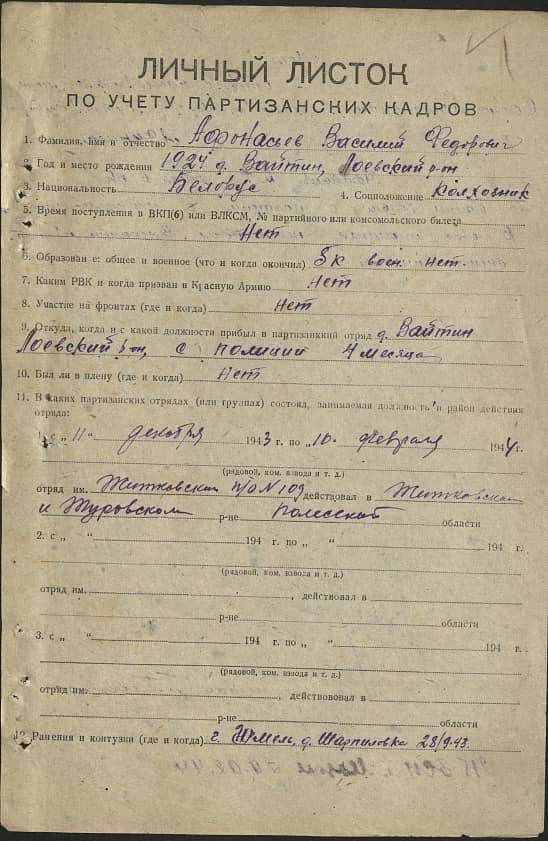 ЛИЧНЫЙ ЛИСТОК
ПО УЧЕТУ ПАРТИЗАНСКИХ КАДРОВ
1. Фамилия, имя и отчество Афонасьев Василий Федорович
2. Год и место рождения 1924 д. Вайтин, Лоевский р-он
3. Национальность Белорус 4. Соцположение Колхозник
5. Время поступления в ВКП(б) или ВЛКСМ, № партийного или комсомольского билета
Нет
6. Образован е: общее и военное (что и когда окончил) 5 к воен. нет.
7. Каким РВК и когда призван в Красную Армию Нет
8. Участие на фронтах (где и когда) Нет
9. Откуда, когда и с какой должности прибыл в партизанкий отряд д. Вайтин
Лоевский р-он, с полиции 4 месяца
10. Был ли в плену (где и когда) Нет
11. В каких партизанских отрядах (или группах) состоял, занимаемая должность и район действия
отряда:
1. с „ 11 “ декабря 1943 г. по „ 10. февраля 1944 г.
(рядовой, ком. взвода и т. д.)
отряд им. Житковский п/о N 109 действовал в Житковском
и Туровском р-не Полесской области
2. с „ “ 194 г. по „ “ 194 г.
(рядовой, ком. взвода и т. д.)
отряд им. , действовал в
р-не области
3. с „ “ 194 г. по „ “ 194 г.
(рядовой, ком. взвода и т. д.)
отряд им. , действововал в
р-не области
12. Ранения и контузии (где и когда) д. Шарпиловка 28/9-43.